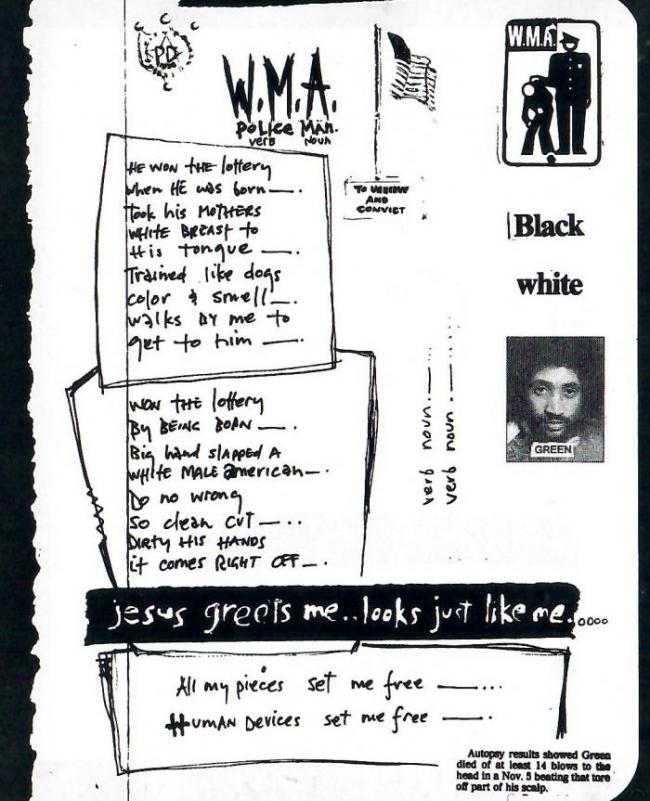 PD
W.M.A.
POLICE MAN.
verb noun
TO
AND
CONVICT
W.M.A.
HE WON THE lottery
when HE was born —.
Took his MOTHERS
WHITE BREAST to
His tongue —.
Trained like dogs
color & smell —.
walks BY me to
get to him —.
WON THE lottery
By BEING BORN —.
Big hand slapped A
WHITE MALE american —.
Do no wrong
So clean cut —..
DIRTY HIS HANDS
it comes RIGHT OFF —.
verb noun.
verb noun.
Black
white
GREEN
jesus greets me..looks just like me.....
All my pieces set me free —...
HUMAN DEVICES set me free —.
Autopsy results showed Green
died of at least 14 blows to the
head in a Nov. 5 beating that tore
off part of his scalp.